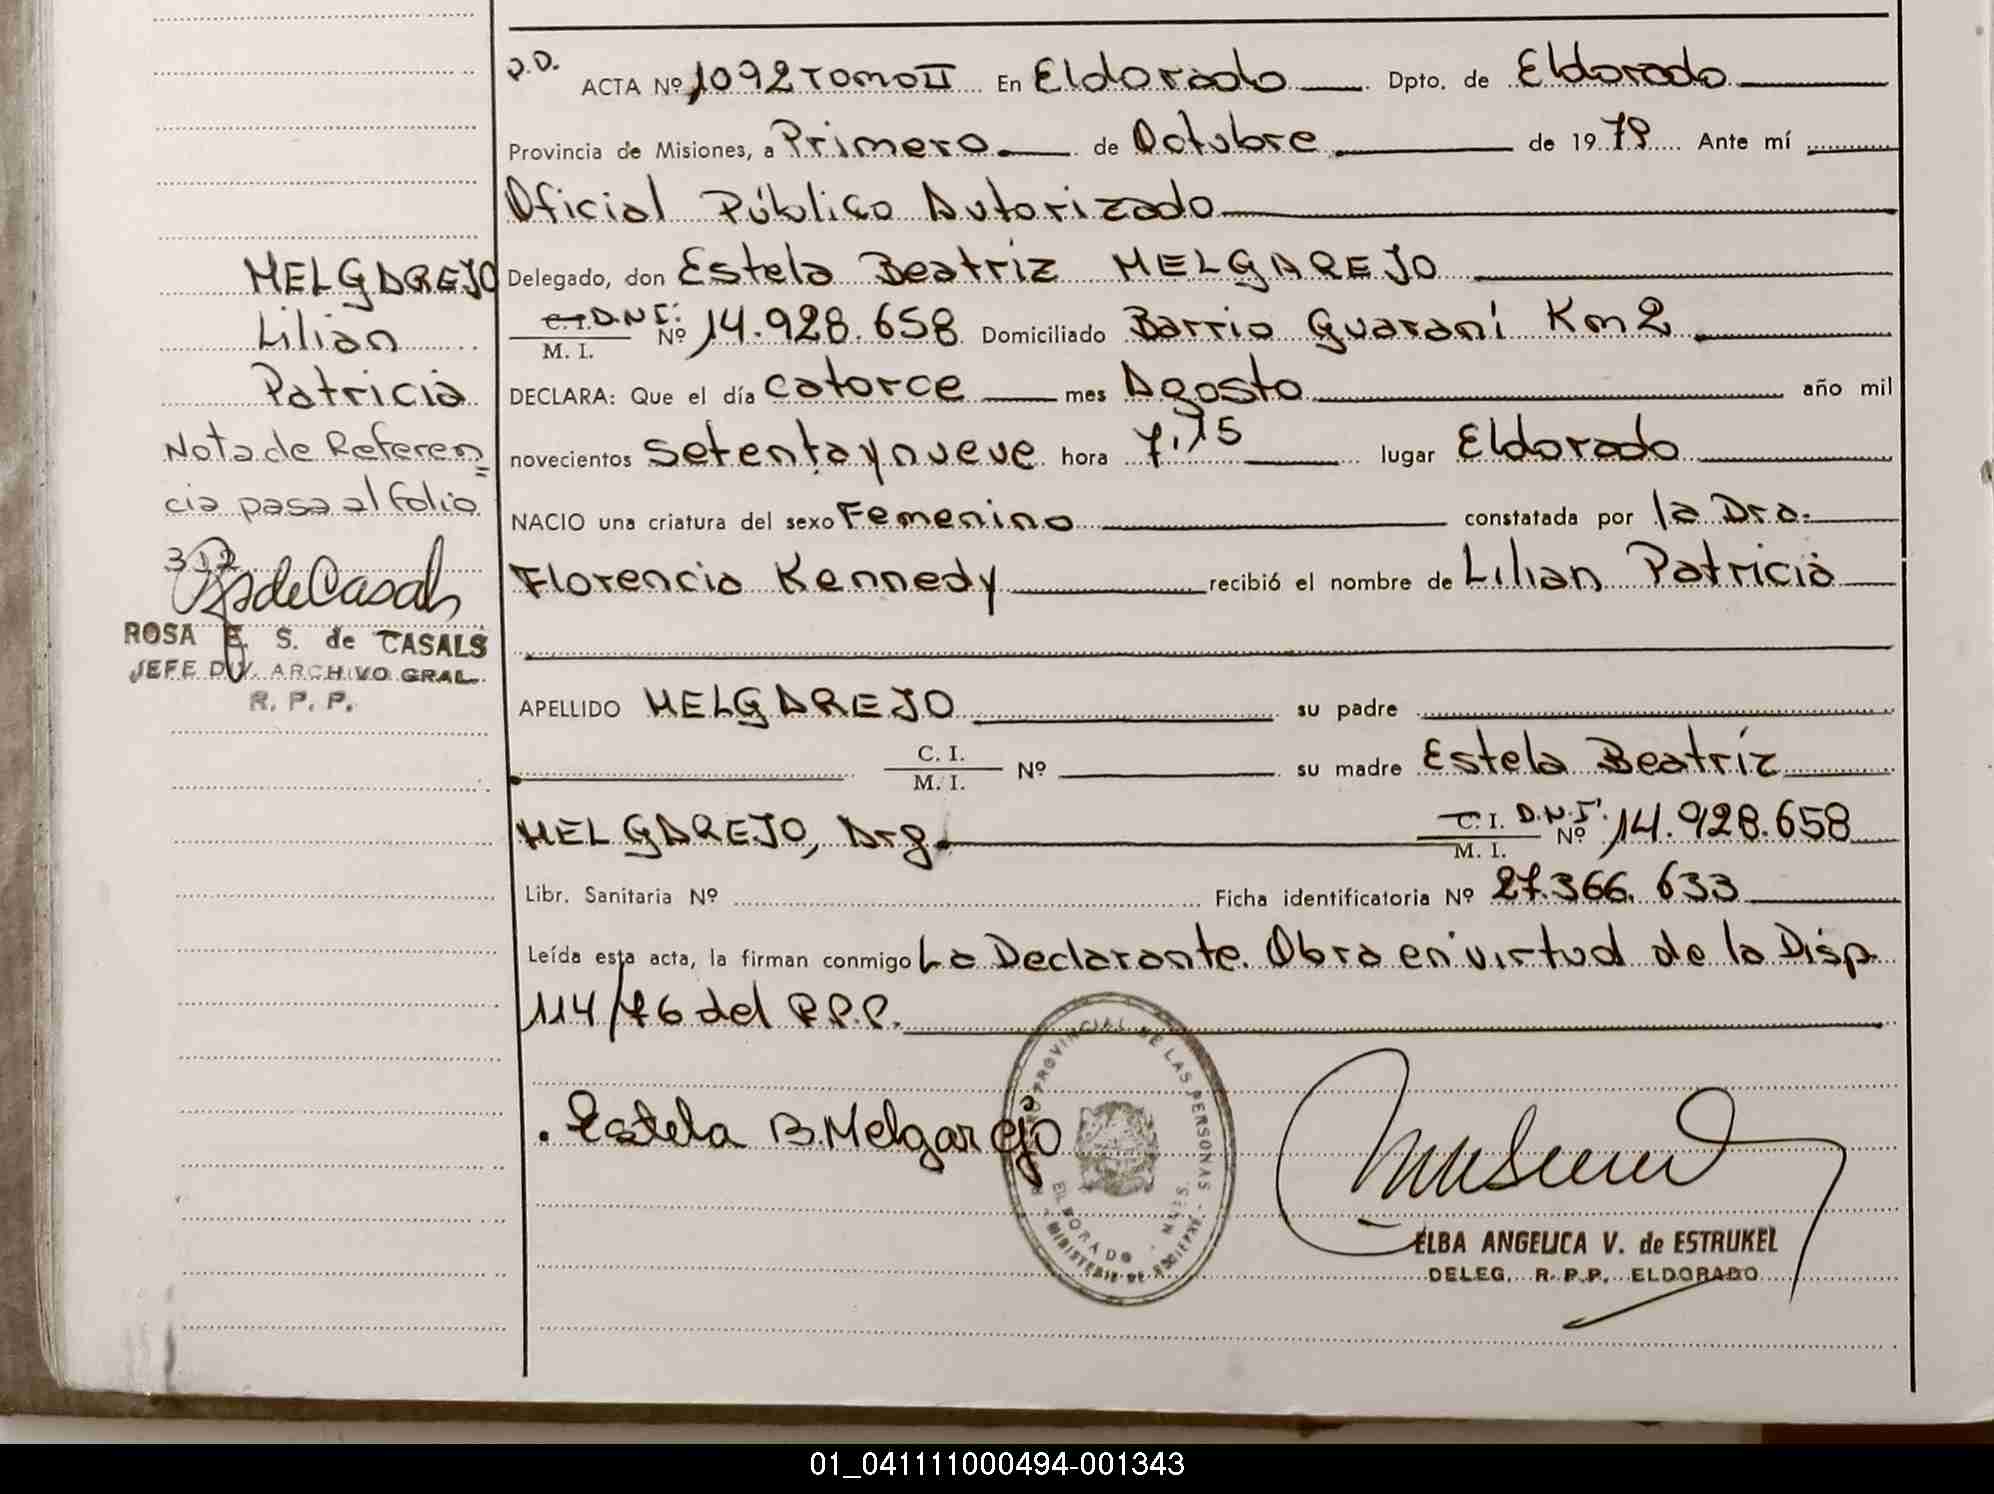 P.D.
ACTA Nº 1092 TOMO II En Eldorado Dpto. de Eldorado
Provincia de Misiones, a Primero de Octubre de 1979 Ante mí
Oficial Público Autorizado
MELGAREJO
Lilian
Patricia
Nota de Referen=
cia pasa al folio
312
RSdeCasals
ROSA E. S. de CASALS
JEFE DIV. ARCHIVO GRAL.
R. P. P.
Delegado, don Estela Beatriz MELGAREJO
C.I. D.N.I. M. I. Nº 14.928.658 Domiciliado Barrio Guaraní Km 2
DECLARA: Que el día catorce mes Agosto año mil
novecientos setenta y nueve hora 7,15 lugar Eldorado
NACIO una criatura del sexo Femenino constatada por la Dra.
Florencia Kennedy recibió el nombre de Lilian Patricia
APELLIDO MELGAREJO su padre
C. I. M. I. Nº su madre Estela Beatríz
MELGAREJO, Arg. C. I. D.N.I. M. I. Nº 14.928.658
Libr. Sanitaria Nº Ficha identificatoria Nº 27.366.633
Leída esta acta, la firman conmigo La Declarante. Obra en virtud de la Disp.
114/76 del R.P.P.
Estela B. Melgarejo
PROVINCIAL DE LAS PERSONAS
ELDORADO - MNES.
MINISTERIO DE
ELBA ANGELICA V. de ESTRUKEL
DELEG. R. P. P. ELDORADO
01_041111000494-001343